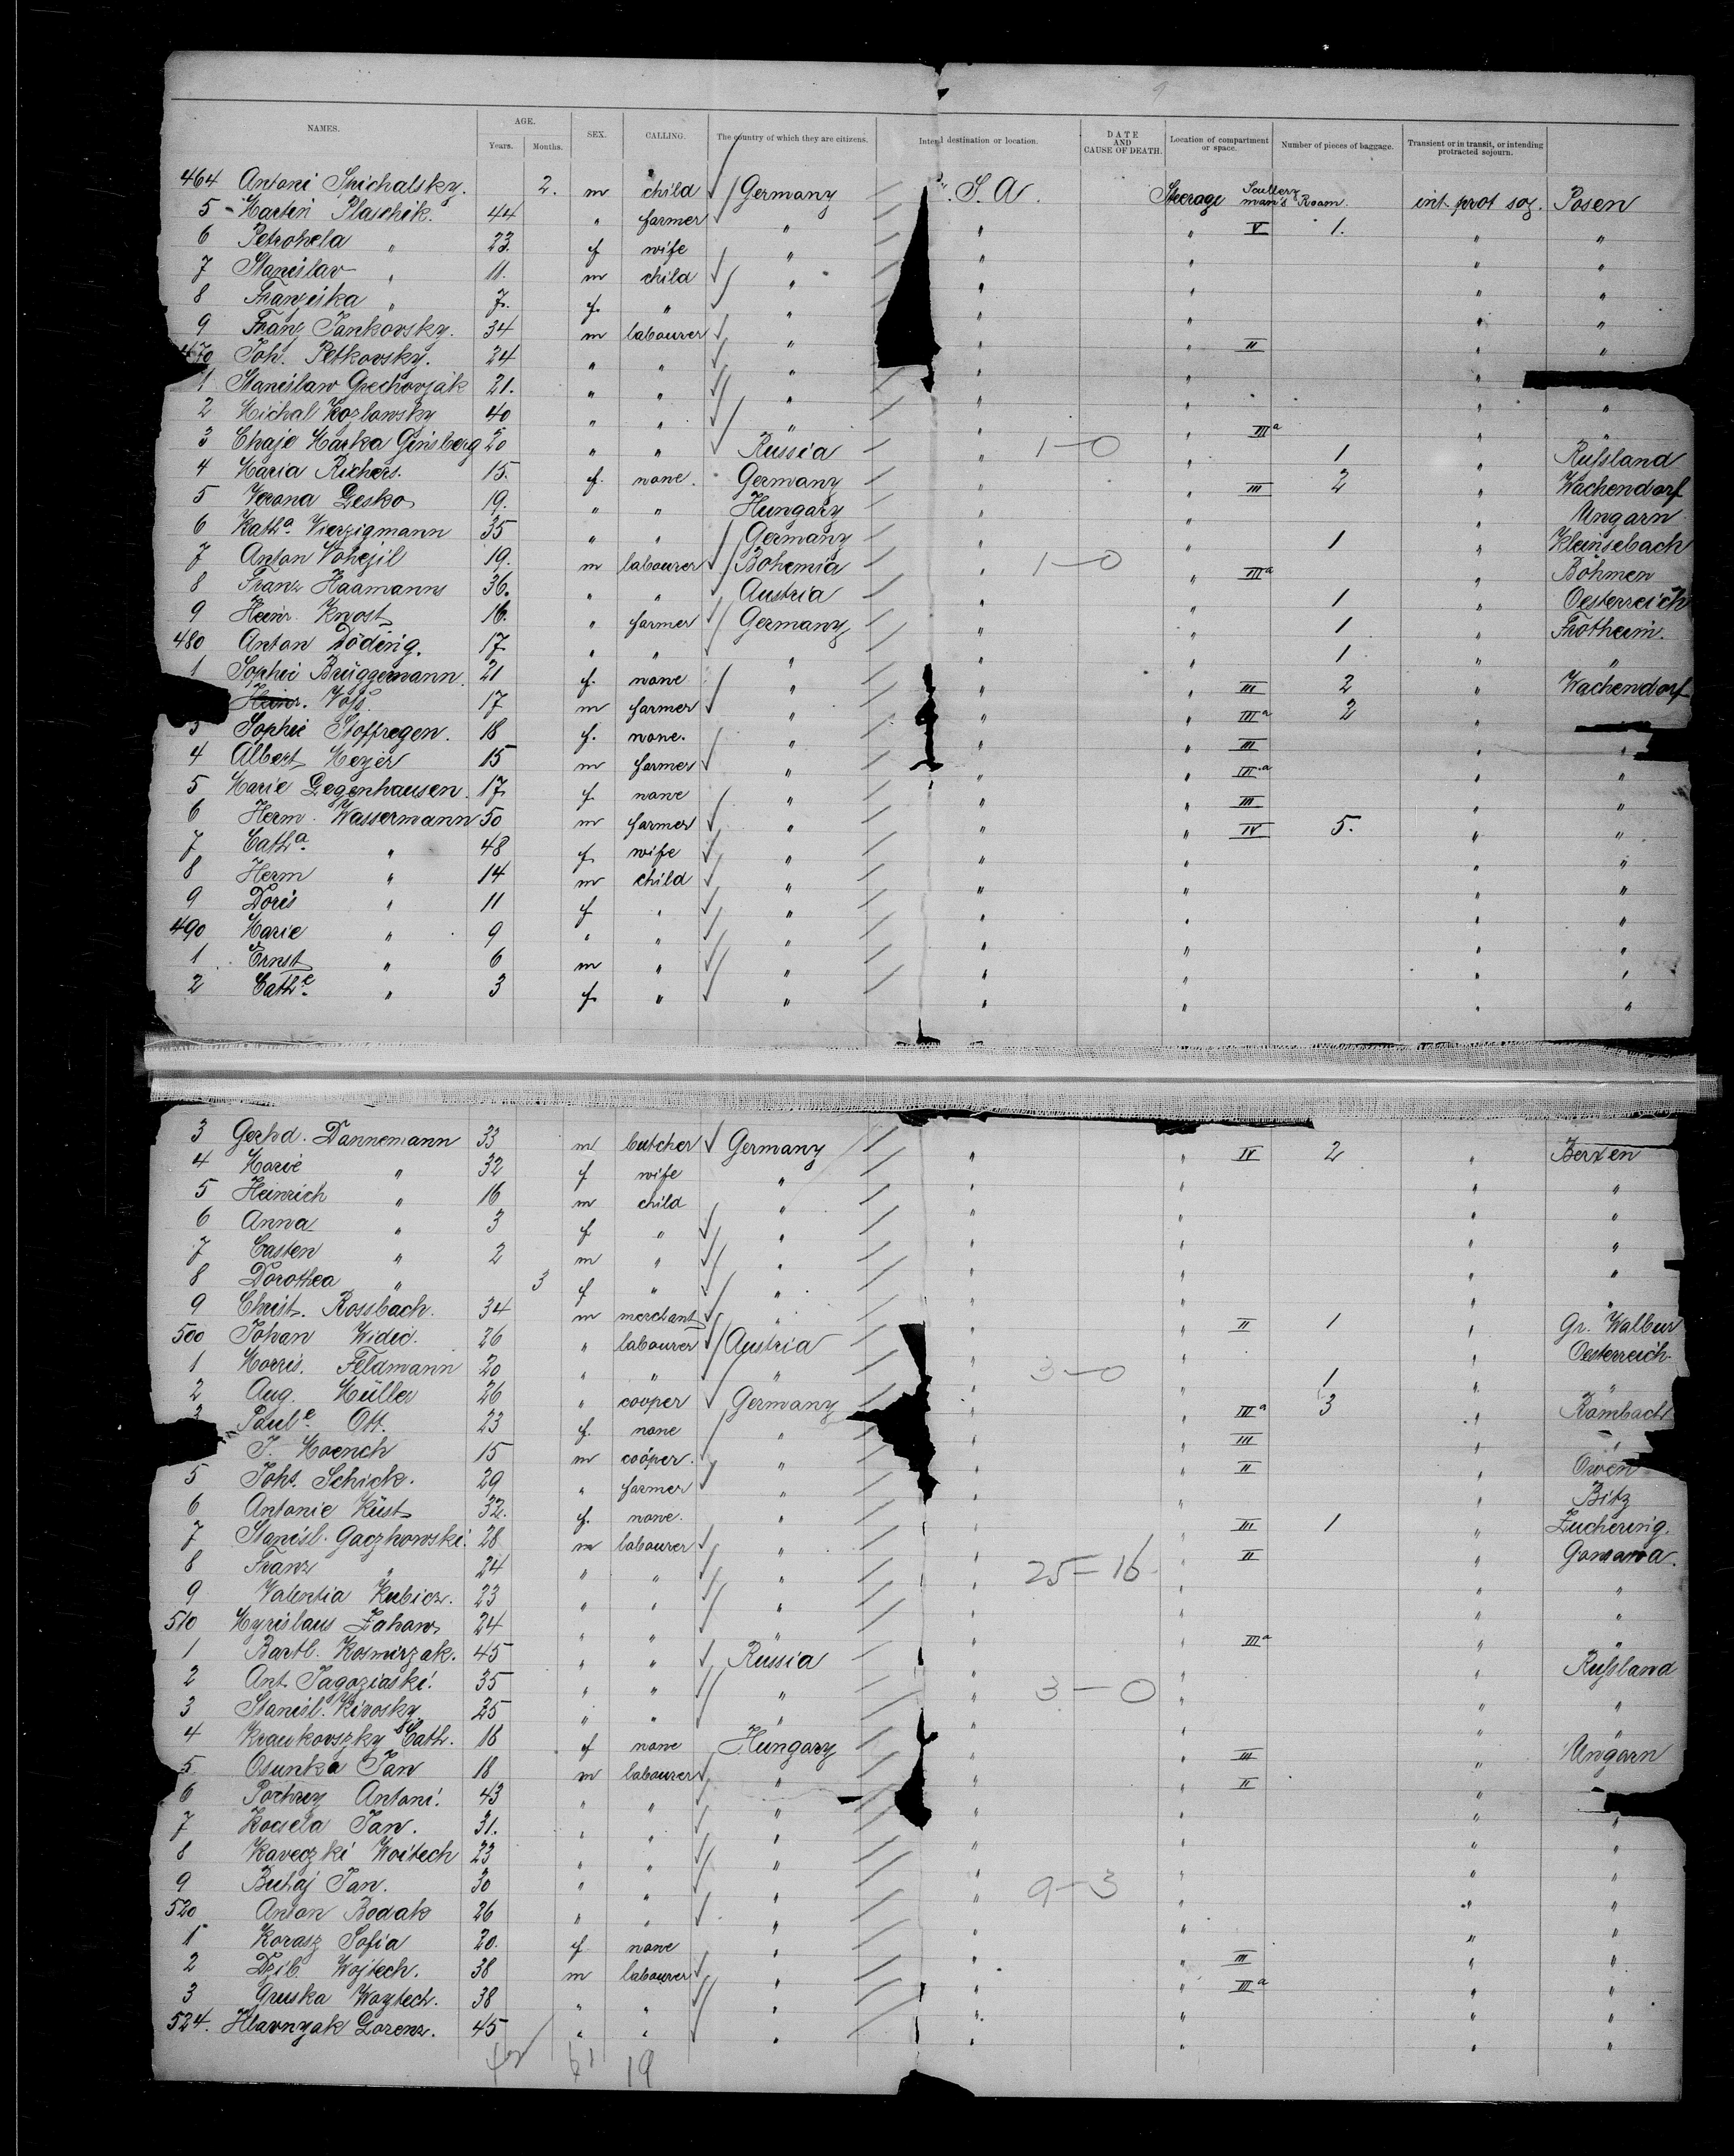 9
NAMES. AGE. Years. Months. SEX. CALLING. The country of which they are citizens. Intend destination or location. DATE AND CAUSE OF DEATH. Location of compartment or space. Number of pieces of baggage. Transient or in transit, or intending protracted sojourn.
464 Antoni Spichalsky. 2. m child Germany S. A. Steerage Scullery man's Room. int. prot soj. Posen
5 Martin Plaschik. 44 " farmer " " " V 1. " "
6 Petronela " 23. f wife " " " " "
7 Stanislav " 11. m child " " " " "
8 Franziska " 7. f. " " " " " "
9 Franz Jankovsky. 34 m labourer " " " II " "
470 Joh. Petkovsky. 24 " " " " " "
1 Stanislaw Grechovjak 21. " " " " " " "
2 Michal Kozlowsky 40 " " " " " III a " "
3 Chaje Marka Ginsberg 20 " " Russia " 1-0 " 1 " Rußland
4 Maria Richers. 15. f. none. Germany " " III 2 " Wachendorf
5 Verona Lesko 19. " " Hungary " " " Ungarn
6 Katha Vierzigmann 35 " " Germany " " 1 " Kleinsebach
7 Anton Vohejil 19. m labourer Bohemia " 1-0 " III a " Böhmen
8 Franz Haamann 36. " " Austria " " 1 " Oesterreich
9 Heinr. Knost 16. " farmer Germany " " 1 " Frotheim.
480 Anton Döding. 17 " " " " " 1 " "
1 Sophie Brüggemann. 21 f. none " " " III 2 " Wachendorf
Heinr. Voß. 17 m farmer " " " III a 2 "
3 Sophie Stoffregen. 18 f. none. " " " III " "
4 Albert Meyer 15 m farmer " " " III a " "
5 Marie Degenhausen. 17 f. none " " " III " "
6 Herm. Wassermann 50 m farmer " " " IV 5. " "
7 Catha " 48 f. wife " " " " "
8 Herm " 14 m child " " " " "
9 Doris " 11 f " " " " " "
490 Marie " 9 " " " " " " "
1 Ernst " 6 m " " " " " "
2 Cathe " 3 f. " " " " " "
3 Gerhd. Dannemann 33 m butcher Germany " " IV 2 " Berxen
4 Marie " 32 f wife " " " " "
5 Heinrich " 16 m child " " " " "
6 Anna " 3 f " " " " " "
7 Casten " 2 m " " " " " "
8 Dorothea " 3 f " " " " " "
9 Christ. Rossbach. 34 m merchant " " " II 1 " Gr. Walbur
500 Johan Widec. 26 " labourer Austria " " " Oesterreich
1 Morris. Feldmann 20 " " " " 3-0 " 1 " "
2 Aug. Müller 26 " cooper Germany " " III a 3 " Rambach
3 Paule Ott. 23 f. none " " " III " "
J. Moench 15 m cooper. " " " II " Owen
5 Johs. Schick. 29 " farmer " " " " Bitz
6 Antonie Küst 32. f. none. " " " III 1 " Zuchering.
7 Stanisl. Gaczkowski. 28 m labourer " " " II " Gonsawa.
8 Franz " 24 " " " " 25-16 " " "
9 Valentia Kubicz. 23 " " " " " " "
510 Myrislaus Zahan 24 " " " " " III a " "
1 Bartl. Kosmirzak. 45 " " Russia " " " Rußland
2 Ant. Jagoziaski. 35 " " " " 3-0 " " "
3 Stanisl. Kivosky 25 " " " " " " "
4 Kraukovszky Cath. 18 f none Hungary " " III " Ungarn
5 Osunka Jan 18 m labourer " " " II "
6 Pochrey Antoni. 43 " " " " " "
7 Kocsela Jan. 31. " " " " " " "
8 Kaveczki Woitech 23 " " " " " " "
9 Buhaj Jan. 30 " " " " 9-3 " " "
520 Anton Bodak 26 " " " " " " "
1 Korasz Sofia 20. f none " " " III " "
2 Dzib. Wojtech. 38 m labourer " " " III a " "
3 Gruska Woytech. 38 " " " " " " "
524. Hlavnyak Lorenz. 45 " " " " " " "
19